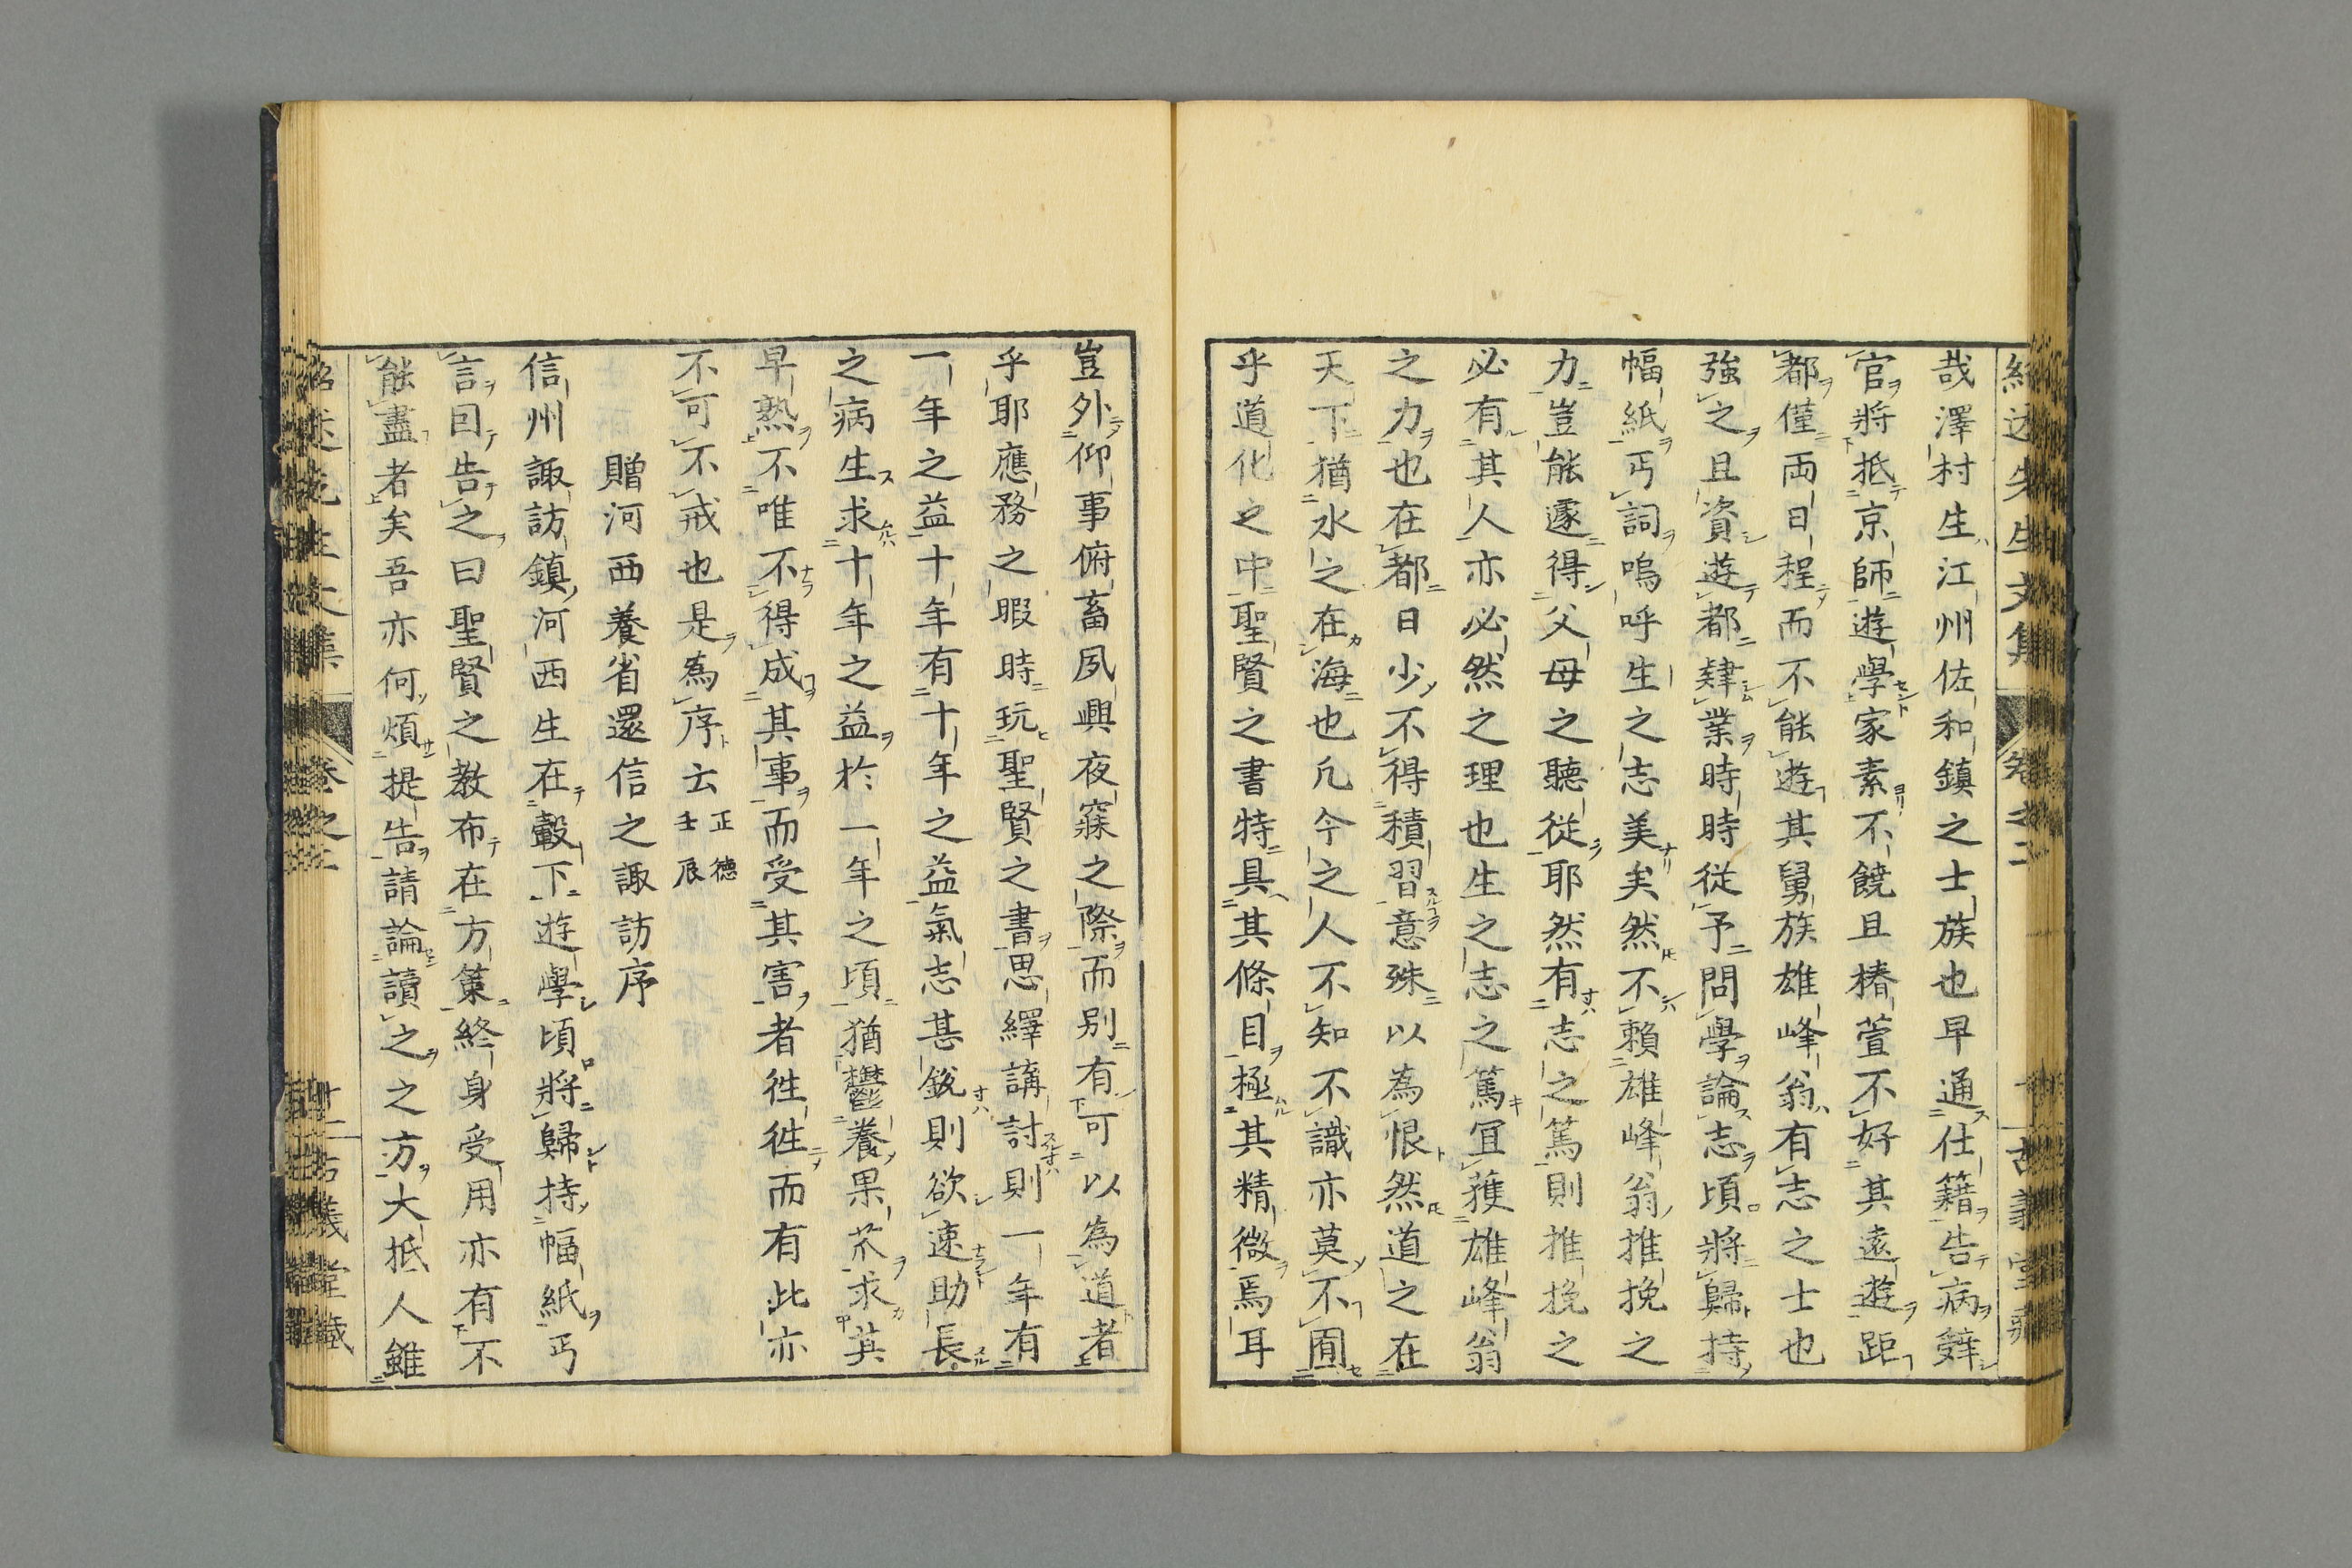 哉澤村生江州佐和鎮之士族也早通仕籍告病辤
官將抵京師遊學家素不饒且椿萱不好其遠遊距
都僅両日程而不能遊其舅族雄峰翁有志之士也
強之且資遊都肄業時時從予問學論志頃將歸持
幅紙丐詞嗚呼生之志美矣然不賴雄峰翁推挽之
力豈能遽得父母之聽從耶然有志之篤則推挽之
必有其人亦必然之理也生之志之篤冝獲雄峰翁
之力也在都日少不得積習意殊以為恨然道之在
天下猶水之在海也凢今之人不知不識亦莫不囿
乎道化之中聖賢之書特具其條目極其精微焉耳
豈外仰事俯畜夙興夜寐之際而别有可以為道者
乎耶應務之暇時玩聖賢之書思繹講討則一年有
一年之益十年有十年之益氣志甚銳則欲速助長
之病生求十年之益於一年之頃猶鬱養果苽求其
早熟不唯不得成其事而受其害者徃徃而有此亦
不可不戒也是為序云 正德壬辰
贈河西養省還信之諏訪序
信州諏訪鎮河西生在轂下遊學頃將歸持幅紙丐
言囙告之曰聖賢之教布在方策終身受用亦有不
能盡者矣吾亦何煩提告請論讀之之方大抵人雖
紹述先生文集 卷之二 十二 古義堂藏